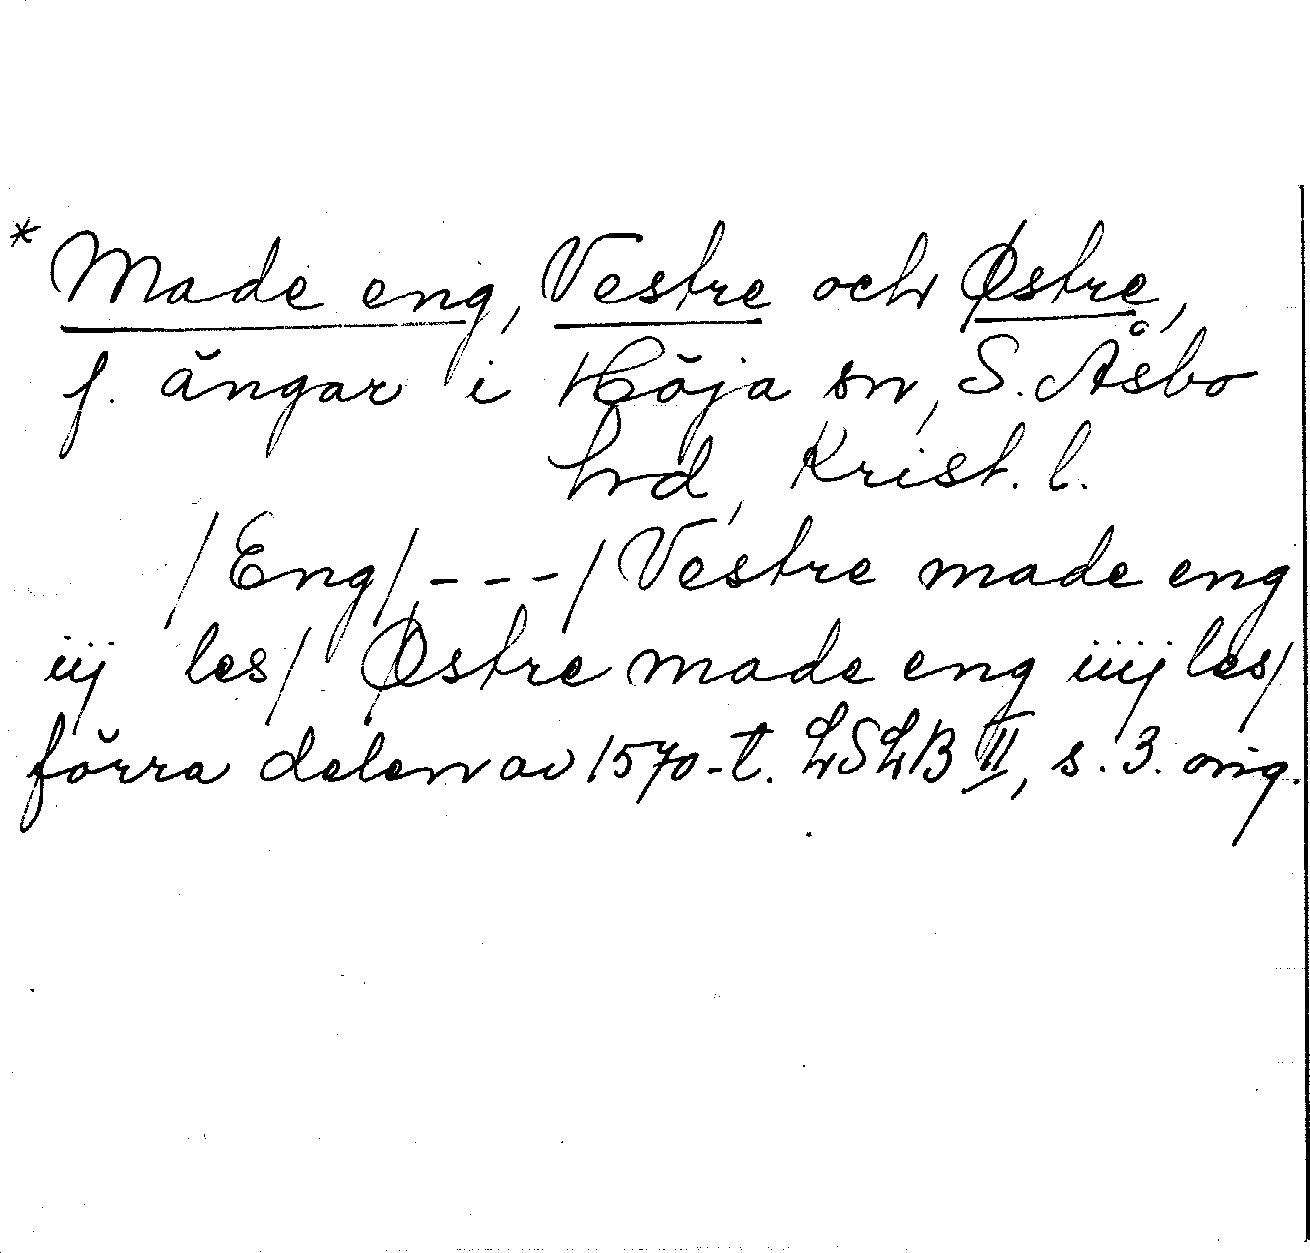 * Made eng, Vestre och Østre,
f. ängar i Höja sn, S. Åsbo
hrd, Krist. l.
/Eng/ - - - / Vestre made eng
iij les/ Østre made eng iiij les/
förra delen av 1570-t. LSLB II, s. 3. orig.